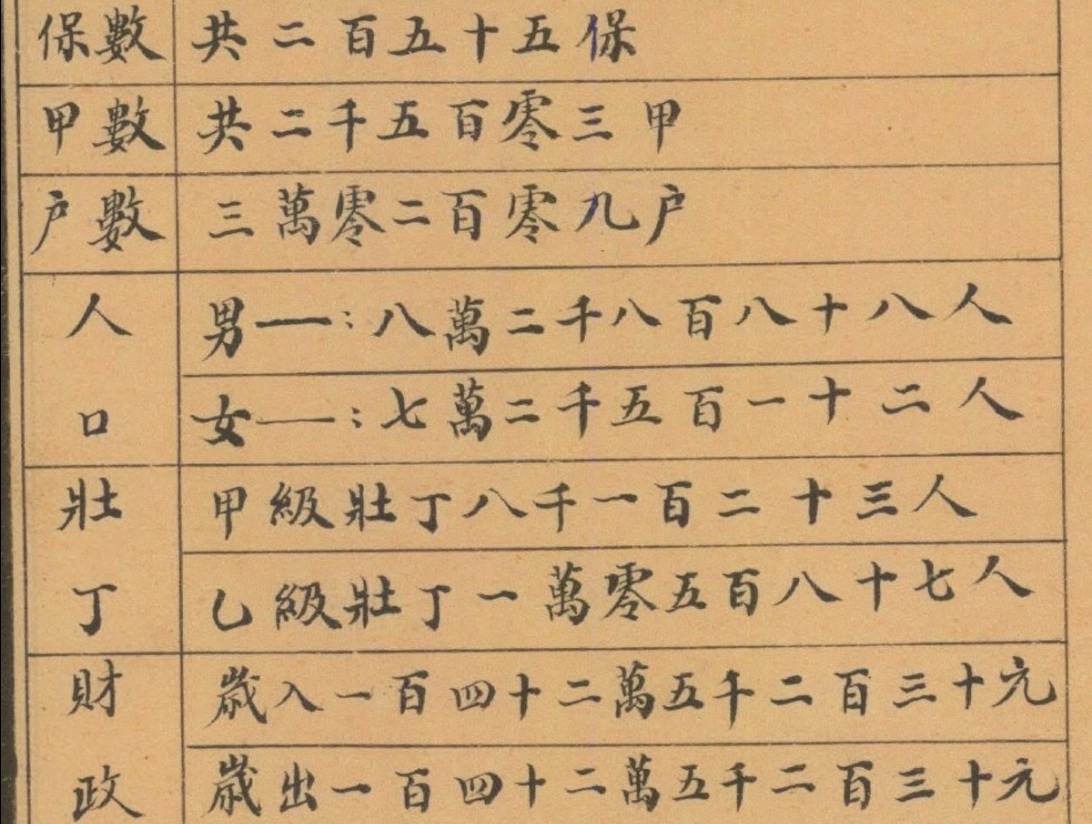 保數 共二百五十五保
甲數 共二千五百零三甲
户數 三萬零二百零九户
人口 男——:八萬二千八百八十八人
女——:七萬二千五百一十二人
壯丁 甲級壯丁八千一百二十三人
乙級壯丁一萬零五百八十七人
財政 歲入一百四十二萬五千二百三十元
歲出一百四十二萬五千二百三十元